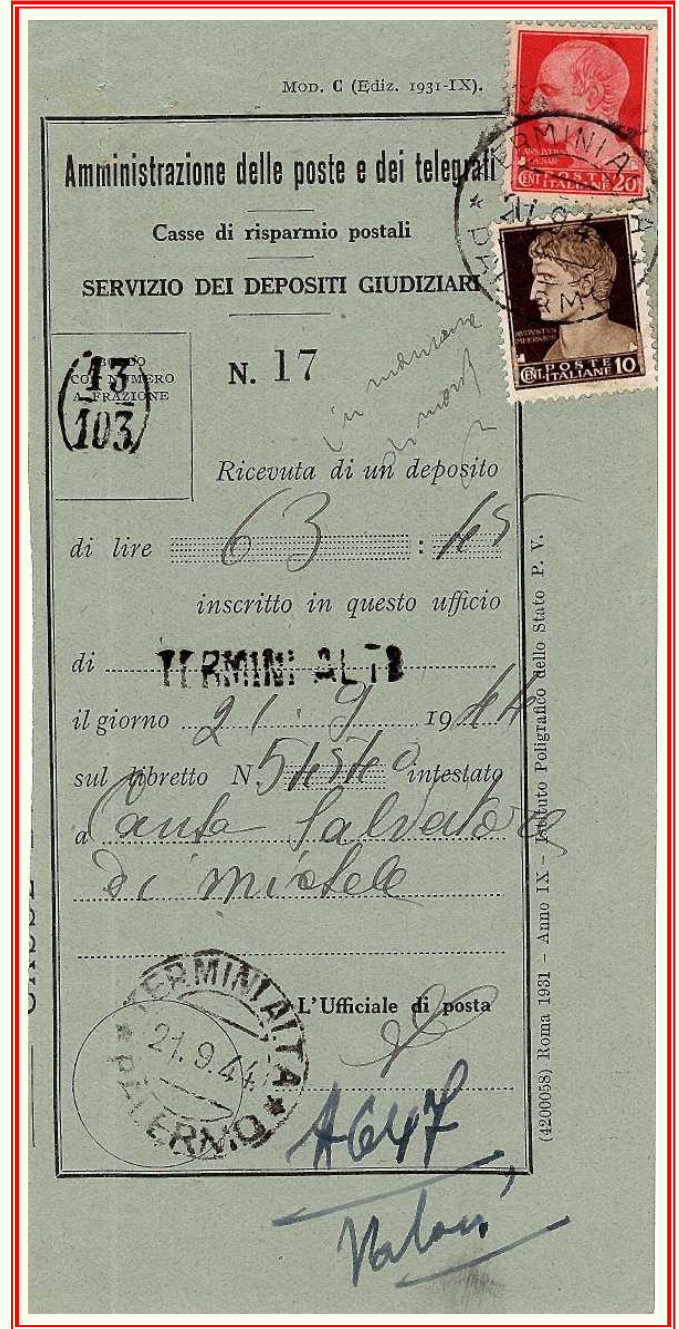 MOD. C (Ediz. 1931-IX).
Amministrazione delle poste e dei telegrafi
Casse di risparmio postali
SERVIZIO DEI DEPOSITI GIUDIZIARI
BOLLO
COL NUMERO
A FRAZIONE
13
103
N. 17
in mancanza
di
Ricevuta di un deposito
di lire 63 : 45
inscritto in questo ufficio
di TERMINI ALTO
il giorno 21 . 9 1944
sul libretto N. intestato
a Salvatore
di Michele
L'Ufficiale di posta
TERMINI ALTA
21.9.44
* PALERMO *
A647
Valori
(4200058) Roma 1931 - Anno IX - Istituto Poligrafico dello Stato P. V.
CAESAR
CENT. POSTE ITALIANE 20
AVGVSTVS
IMPERATOR
CENT. POSTE ITALIANE 10
TERMINI ALTA
21.9.4
* PALERMO